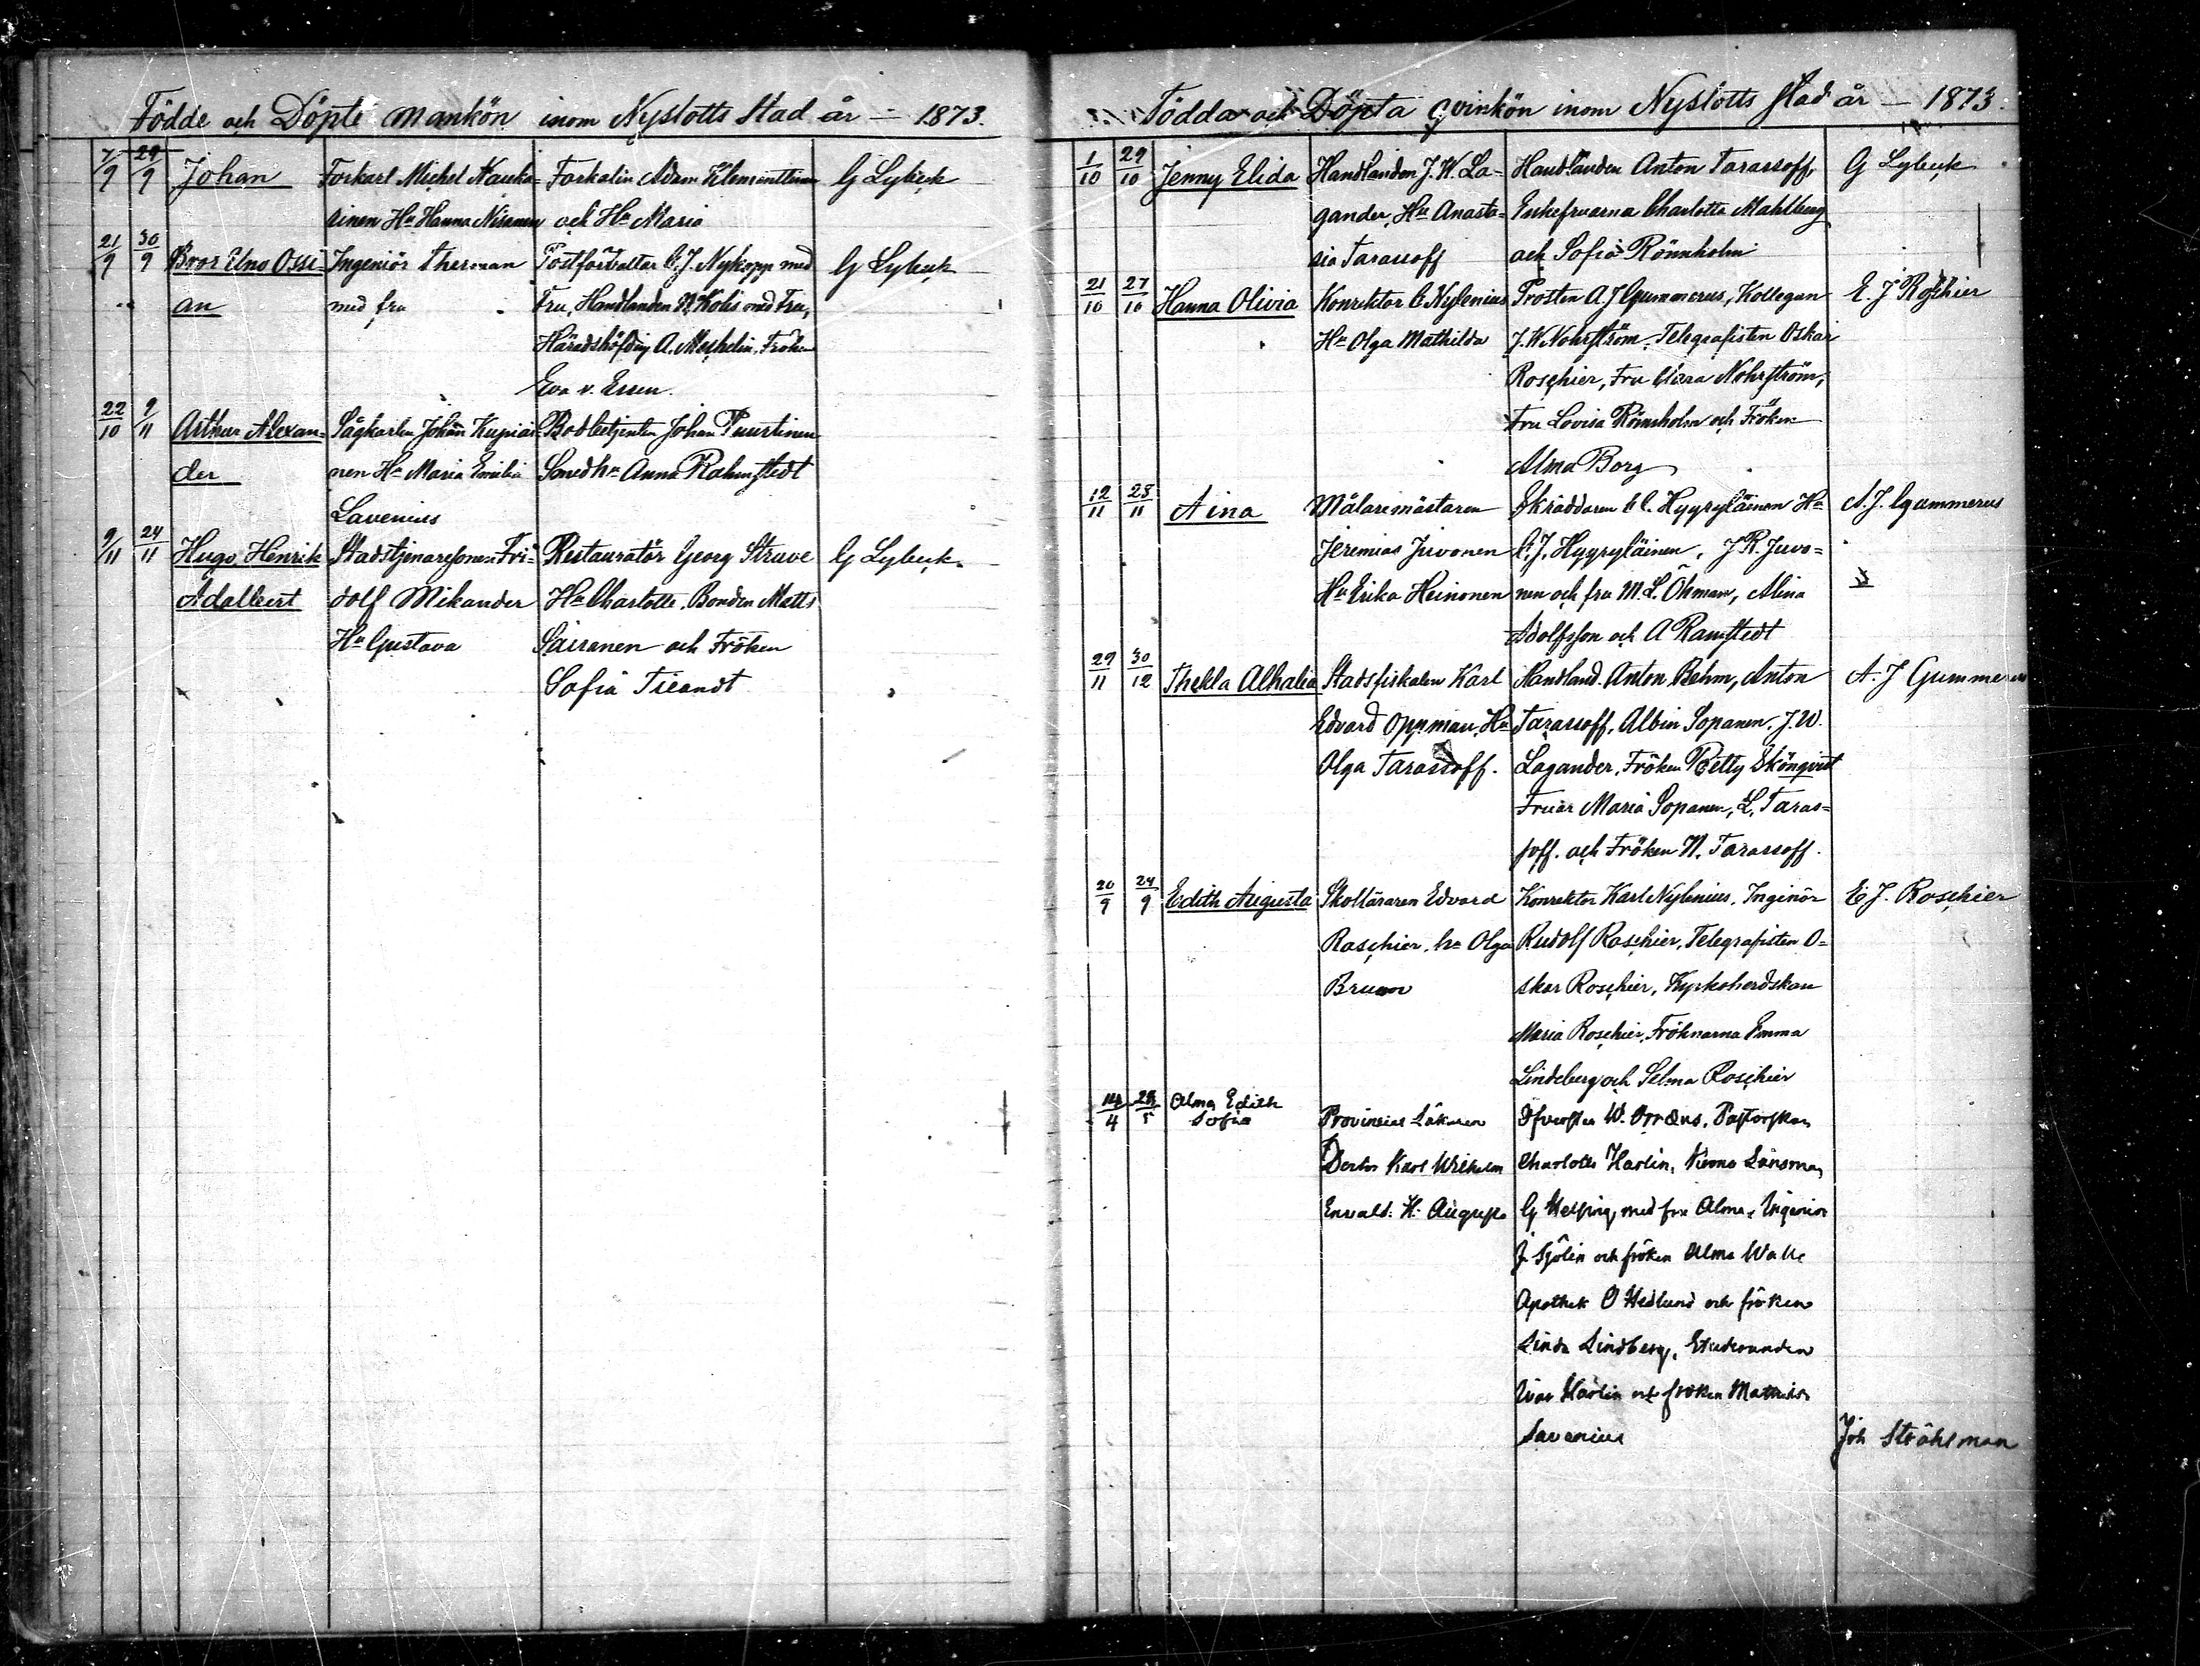 Födde och Döpte mankön inom Nyslotts Stad år – 1873.
7/9 29/9 Johan Forkarl Michel Nauka- Forkalin Adam Klementtinen G Lybeck
rinen Hu Hanna Nissinen och Hu Maria
21/9 30/9 Bror Uno Ossi- Ingeniör Therman Postförvaltar C. J. Nykopp med G Lybeck
an med fru Fru, Handlanden N. Kolis med Fru,
Häradshöfding A. Meshelin, Fröken
Eva v. Essen.
22/10 9/11 Arthur Alexan- Sågkarlen Johan Kupiai- Bodbetjenten Johan Puurtinen
der nen Hu Maria Emilia Smedhu Anna Rahmstedt
Lavenius
9/11 24/11 Hugo Henrik Stadstjenaresonen Fri- Restauratör Georg Struve G Lybeck.
Adalbert dolf Mikander Hu Charlotte. Bonden Matts
Hu Gustava Sairanen och Fröken
Sofia Tieandt
Födda och Döpta qvinkön inom Nyslotts stad år – 1873.
1/10 29/10 Jenny Elida Handlanden J. W. La- Handlanden Anton Tarassoff, G Lybeck
gander, Hu Anasta- Enkefruarna Charlotta Mahlberg
sia Tarassoff och Sofia Rönnholm
21/10 27/10 Hanna Olivia Konrektor C Nylenius Prosten A. J Gummerus, Kollegan E. J Roschier
Hu Olga Mathilda J. W Nohrström, Telegrafisten Oskar
Roschier, Fru Clara Nohrström,
Fru Lovisa Rönnholm och Fröken
Alma Borg
12/11 23/11 Aina Målaremästaren Skräddaren C. C. Hyyryläinen Hu A. J. Gummerus
Jeremias Juvonen C. J. Hyyryläinen, J R. Juvo-
Hu Erika Heinonen nen och fru M. L. Öhman, Alina
Adolfsson och A Ramstedt
29/11 30/12 Thekla Athalia Stadsfiskalen Karl Handland. Anton Behm, Anton A. J Gummerus
Edvard Oppman, Hu Tarassoff, Albin Sopanen, J. W.
Olga Tarassoff. Lagander, Fröken Betty Skönqvist
Fruar Maria Sopanen, L. Taras-
soff. och Fröken N. Tarassoff.
20/9 24/9 Edith Augusta Skolläraren Edvard Konrektor Karl Nylenius, Inginör E J. Roschier
Roschier, hu Olga Rudolf Roschier, Telegrafisten O-
Brunn skar Roschier, Kyrkoherdskan
Maria Roschier, Fröknarna Emma
Lindeberg och Selma Roschier
14/4 28/5 Alma Edith
Sofia Provincial Läkaren Öfversten W. Orraeus, Pastorskan
Doctor Karl Wilhelm Charlotte Harlin, Krono Länsman
Enwald. H. Augusta G Helsing med fru Alma, Ingeniör
J. Sjölin och fröken Alma Walle
Apothek O Hedlund och fröken
Linda Lindberg, Studeranden
Ivar Harlin och fröken Mathilda
Savenius Joh Ståhlman